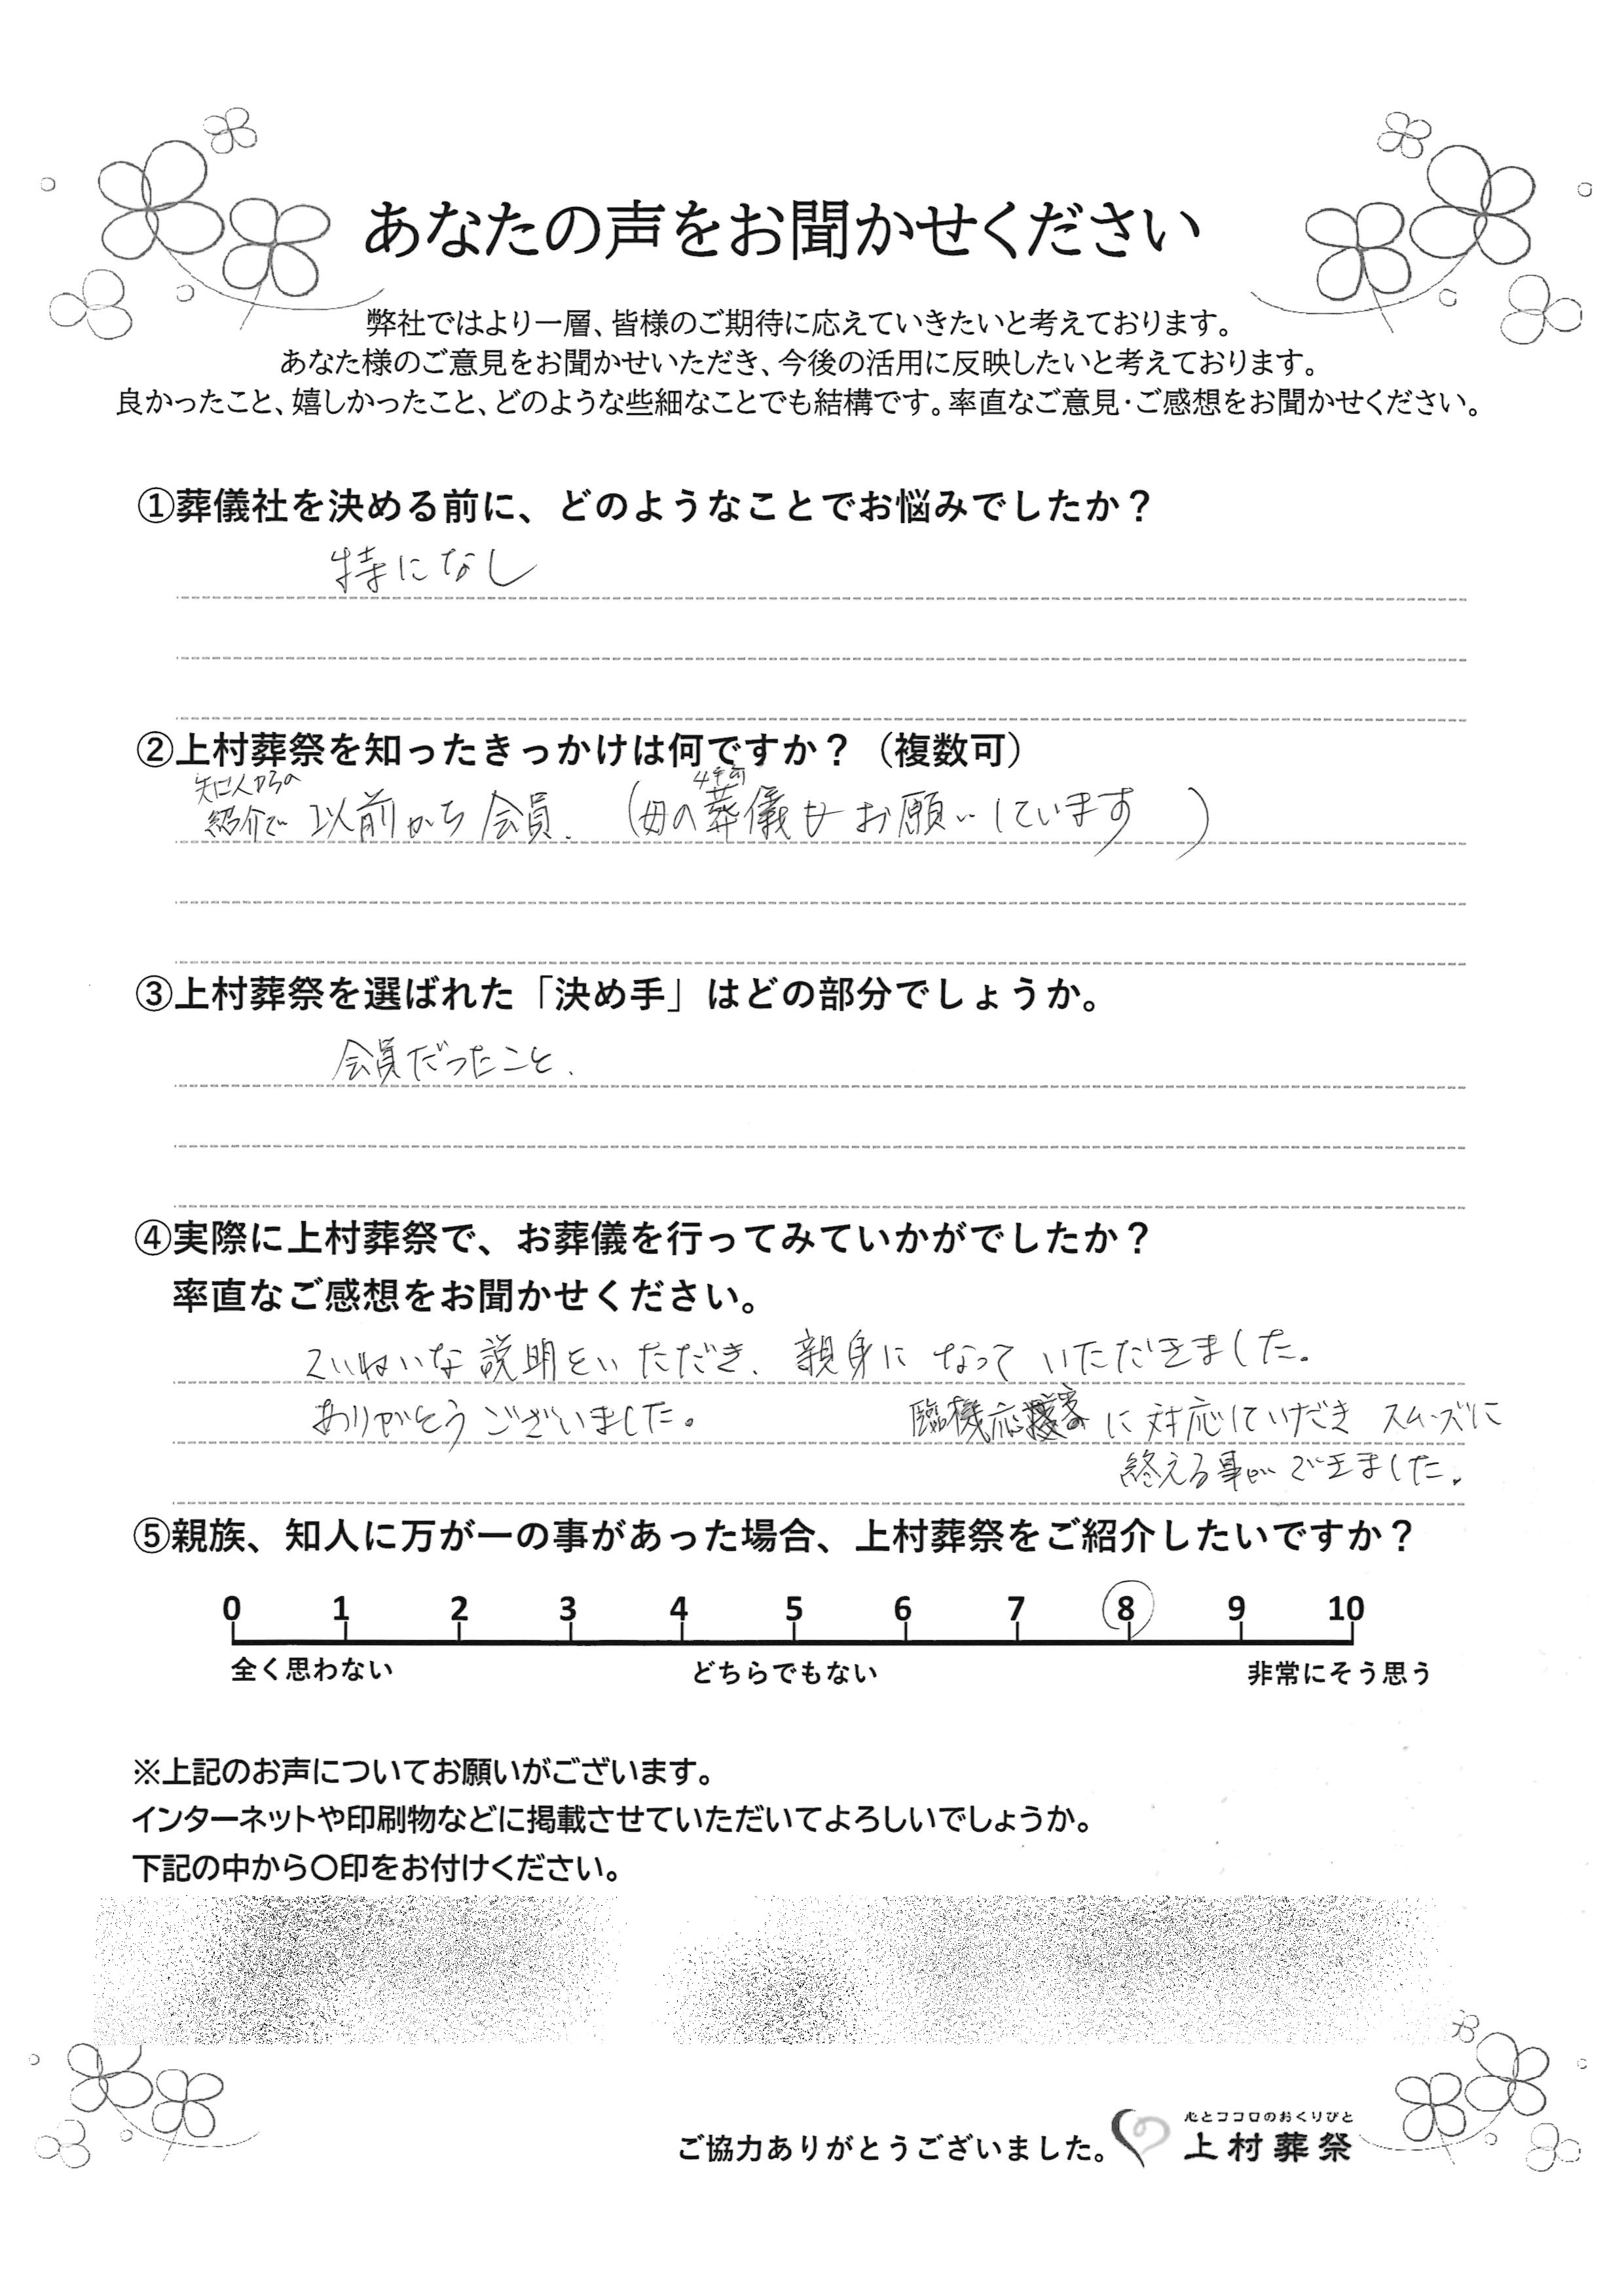 あなたの声をお聞かせください
弊社ではより一層、皆様のご期待に応えていきたいと考えております。
あなた様のご意見をお聞かせいただき、今後の活用に反映したいと考えております。
良かったこと、嬉しかったこと、どのような些細なことでも結構です。率直なご意見・ご感想をお聞かせください。
①葬儀社を決める前に、どのようなことでお悩みでしたか？
特になし
②上村葬祭を知ったきっかけは何ですか？（複数可）
知人からの
4年前
紹介で 以前から会員.（母の葬儀もお願いしています）
③上村葬祭を選ばれた「決め手」はどの部分でしょうか。
会員だったこと.
④実際に上村葬祭で、お葬儀を行ってみていかがでしたか？
率直なご感想をお聞かせください。
ていねいな説明をいただき、親身になっていただきました。
ありがとうございました。 臨機応変に対応していだき スムーズに
終える事ができました。
⑤親族、知人に万が一の事があった場合、上村葬祭をご紹介したいですか？
0 1 2 3 4 5 6 7 8 9 10
全く思わない どちらでもない 非常にそう思う
※上記のお声についてお願いがございます。
インターネットや印刷物などに掲載させていただいてよろしいでしょうか。
下記の中から〇印をお付けください。
心とココロのおくりびと
ご協力ありがとうございました。 上村葬祭